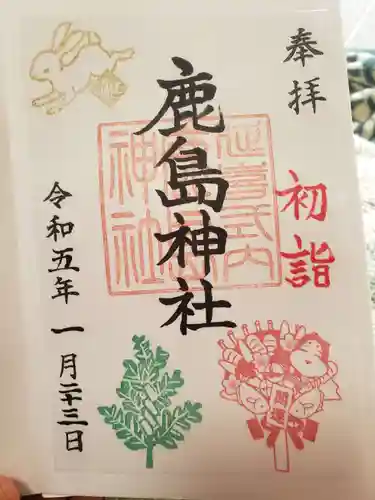 奉拝
初詣
鹿島神社
延喜式内
鹿島
神社
令和五年一月二十三日
開運